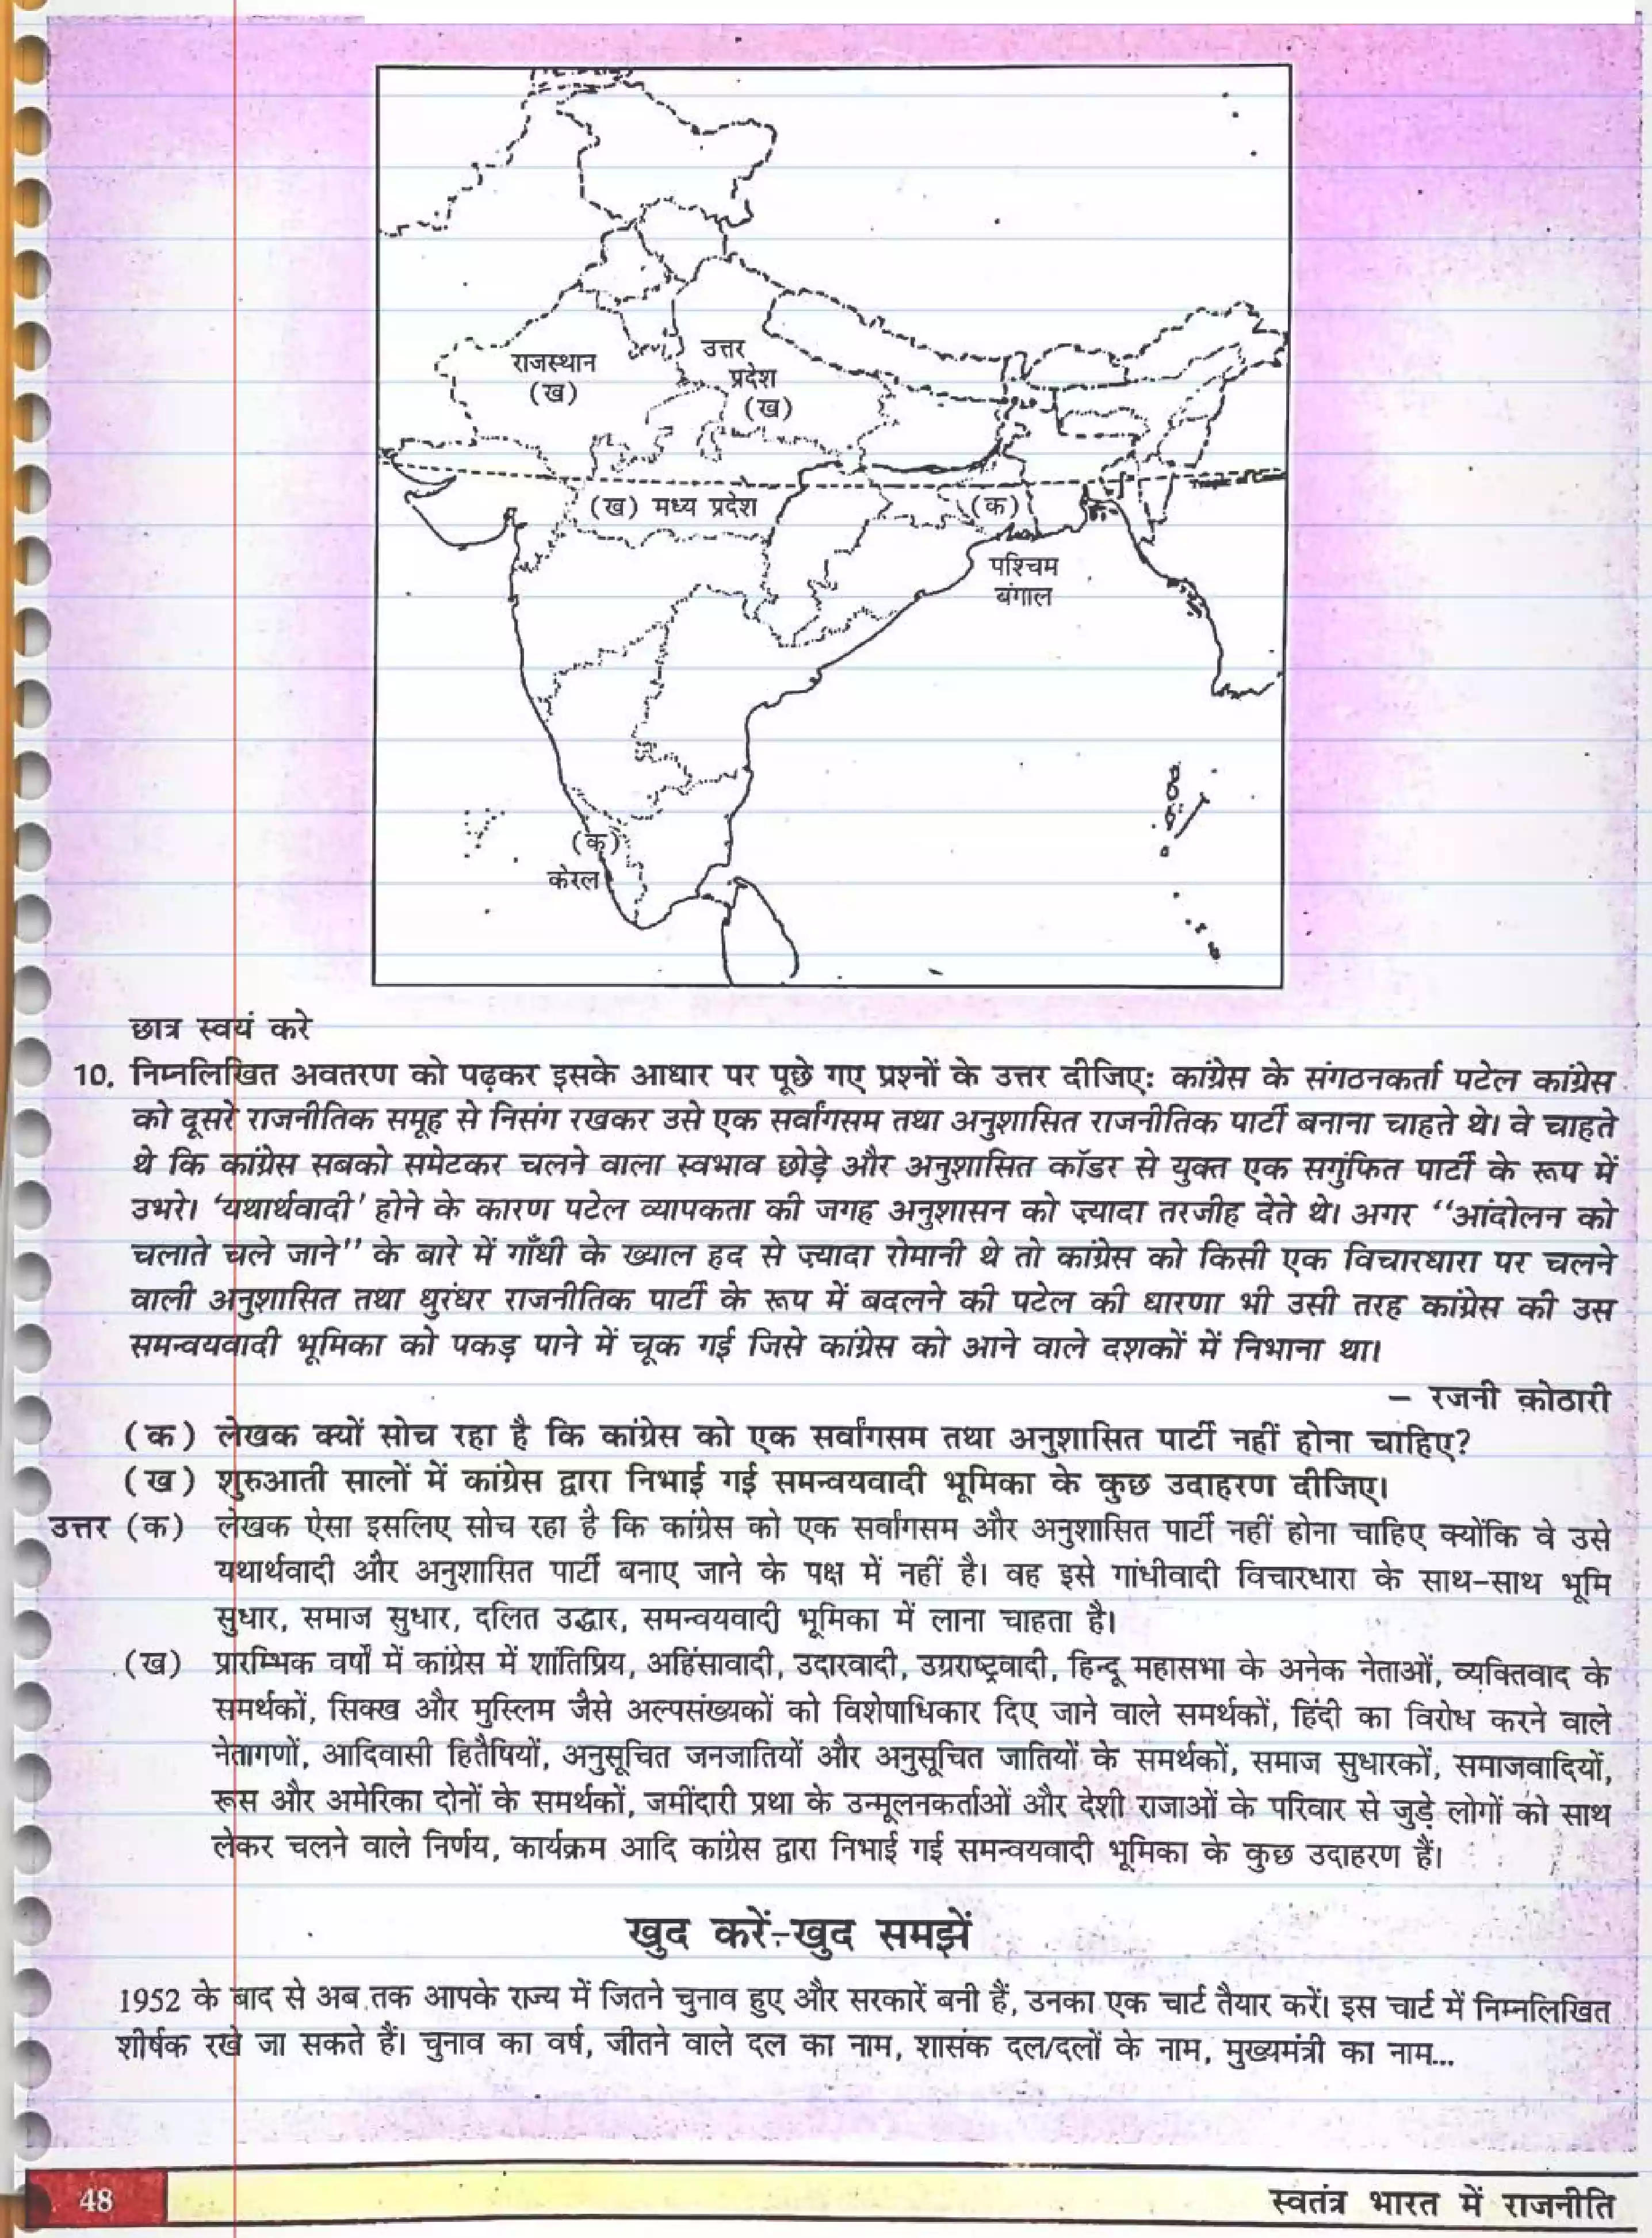 राजस्थान
(ख)
उत्तर
प्रदेश
(ख)
(ख) मध्य प्रदेश
(क)
पश्चिम
बंगाल
(क)
केरल
छात्र स्वयं करे
10. निम्नलिखित अवतरण को पढ़कर इसके आधार पर पूछे गए प्रश्नों के उत्तर दीजिएः कांग्रेस के संगठनकर्ता पटेल कांग्रेस
को दूसरे राजनीतिक समूह से निसंग रखकर उसे एक सर्वांगसम तथा अनुशासित राजनीतिक पार्टी बनाना चाहते थे। वे चाहते
थे कि कांग्रेस सबको समेटकर चलने वाला स्वभाव छोड़े और अनुशासित कॉडर से युक्त एक सगुंफित पार्टी के रूप में
उभरे। ‘यथार्थवादी’ होने के कारण पटेल व्यापकता की जगह अनुशासन को ज़्यादा तरजीह देते थे। अगर “आंदोलन को
चलाते चले जाने” के बारे में गाँधी के ख्याल हद से ज़्यादा रोमानी थे तो कांग्रेस को किसी एक विचारधारा पर चलने
वाली अनुशासित तथा धुरंधर राजनीतिक पार्टी के रूप में बदलने की पटेल की धारणा भी उसी तरह कांग्रेस की उस
समन्वयवादी भूमिका को पकड़ पाने में चूक गई जिसे कांग्रेस को आने वाले दशकों में निभाना था।
– रजनी कोठारी
(क) लेखक क्यों सोच रहा है कि कांग्रेस को एक सर्वांगसम तथा अनुशासित पार्टी नहीं होना चाहिए?
(ख) शुरुआती सालों में कांग्रेस द्वारा निभाई गई समन्वयवादी भूमिका के कुछ उदाहरण दीजिए।
उत्तर (क) लेखक ऐसा इसलिए सोच रहा है कि कांग्रेस को एक सर्वांगसम और अनुशासित पार्टी नहीं होना चाहिए क्योंकि वे उसे
यथार्थवादी और अनुशासित पार्टी बनाए जाने के पक्ष में नहीं है। वह इसे गांधीवादी विचारधारा के साथ-साथ भूमि
सुधार, समाज सुधार, दलित उद्धार, समन्वयवादी भूमिका में लाना चाहता है।
(ख) प्रारम्भिक वर्षों में कांग्रेस में शांतिप्रिय, अहिंसावादी, उदारवादी, उग्रराष्ट्रवादी, हिन्दू महासभा के अनेक नेताओं, व्यक्तिवाद के
समर्थकों, सिक्ख और मुस्लिम जैसे अल्पसंख्यकों को विशेषाधिकार दिए जाने वाले समर्थकों, हिंदी का विरोध करने वाले
नेतागणों, आदिवासी हितैषियों, अनुसूचित जनजातियों और अनुसूचित जातियों के समर्थकों, समाज सुधारकों, समाजवादियों,
रूस और अमेरिका दोनों के समर्थकों, जमींदारी प्रथा के उन्मूलनकर्ताओं और देशी राजाओं के परिवार से जुड़े लोगों को साथ
लेकर चलने वाले निर्णय, कार्यक्रम आदि कांग्रेस द्वारा निभाई गई समन्वयवादी भूमिका के कुछ उदाहरण हैं।
खुद करें-खुद समझें
1952 के बाद से अब तक आपके राज्य में जितने चुनाव हुए और सरकारें बनी हैं, उनका एक चार्ट तैयार करें। इस चार्ट में निम्नलिखित
शीर्षक रखे जा सकते हैं। चुनाव का वर्ष, जीतने वाले दल का नाम, शासक दल/दलों के नाम, मुख्यमंत्री का नाम...
48
स्वतंत्र भारत में राजनीति